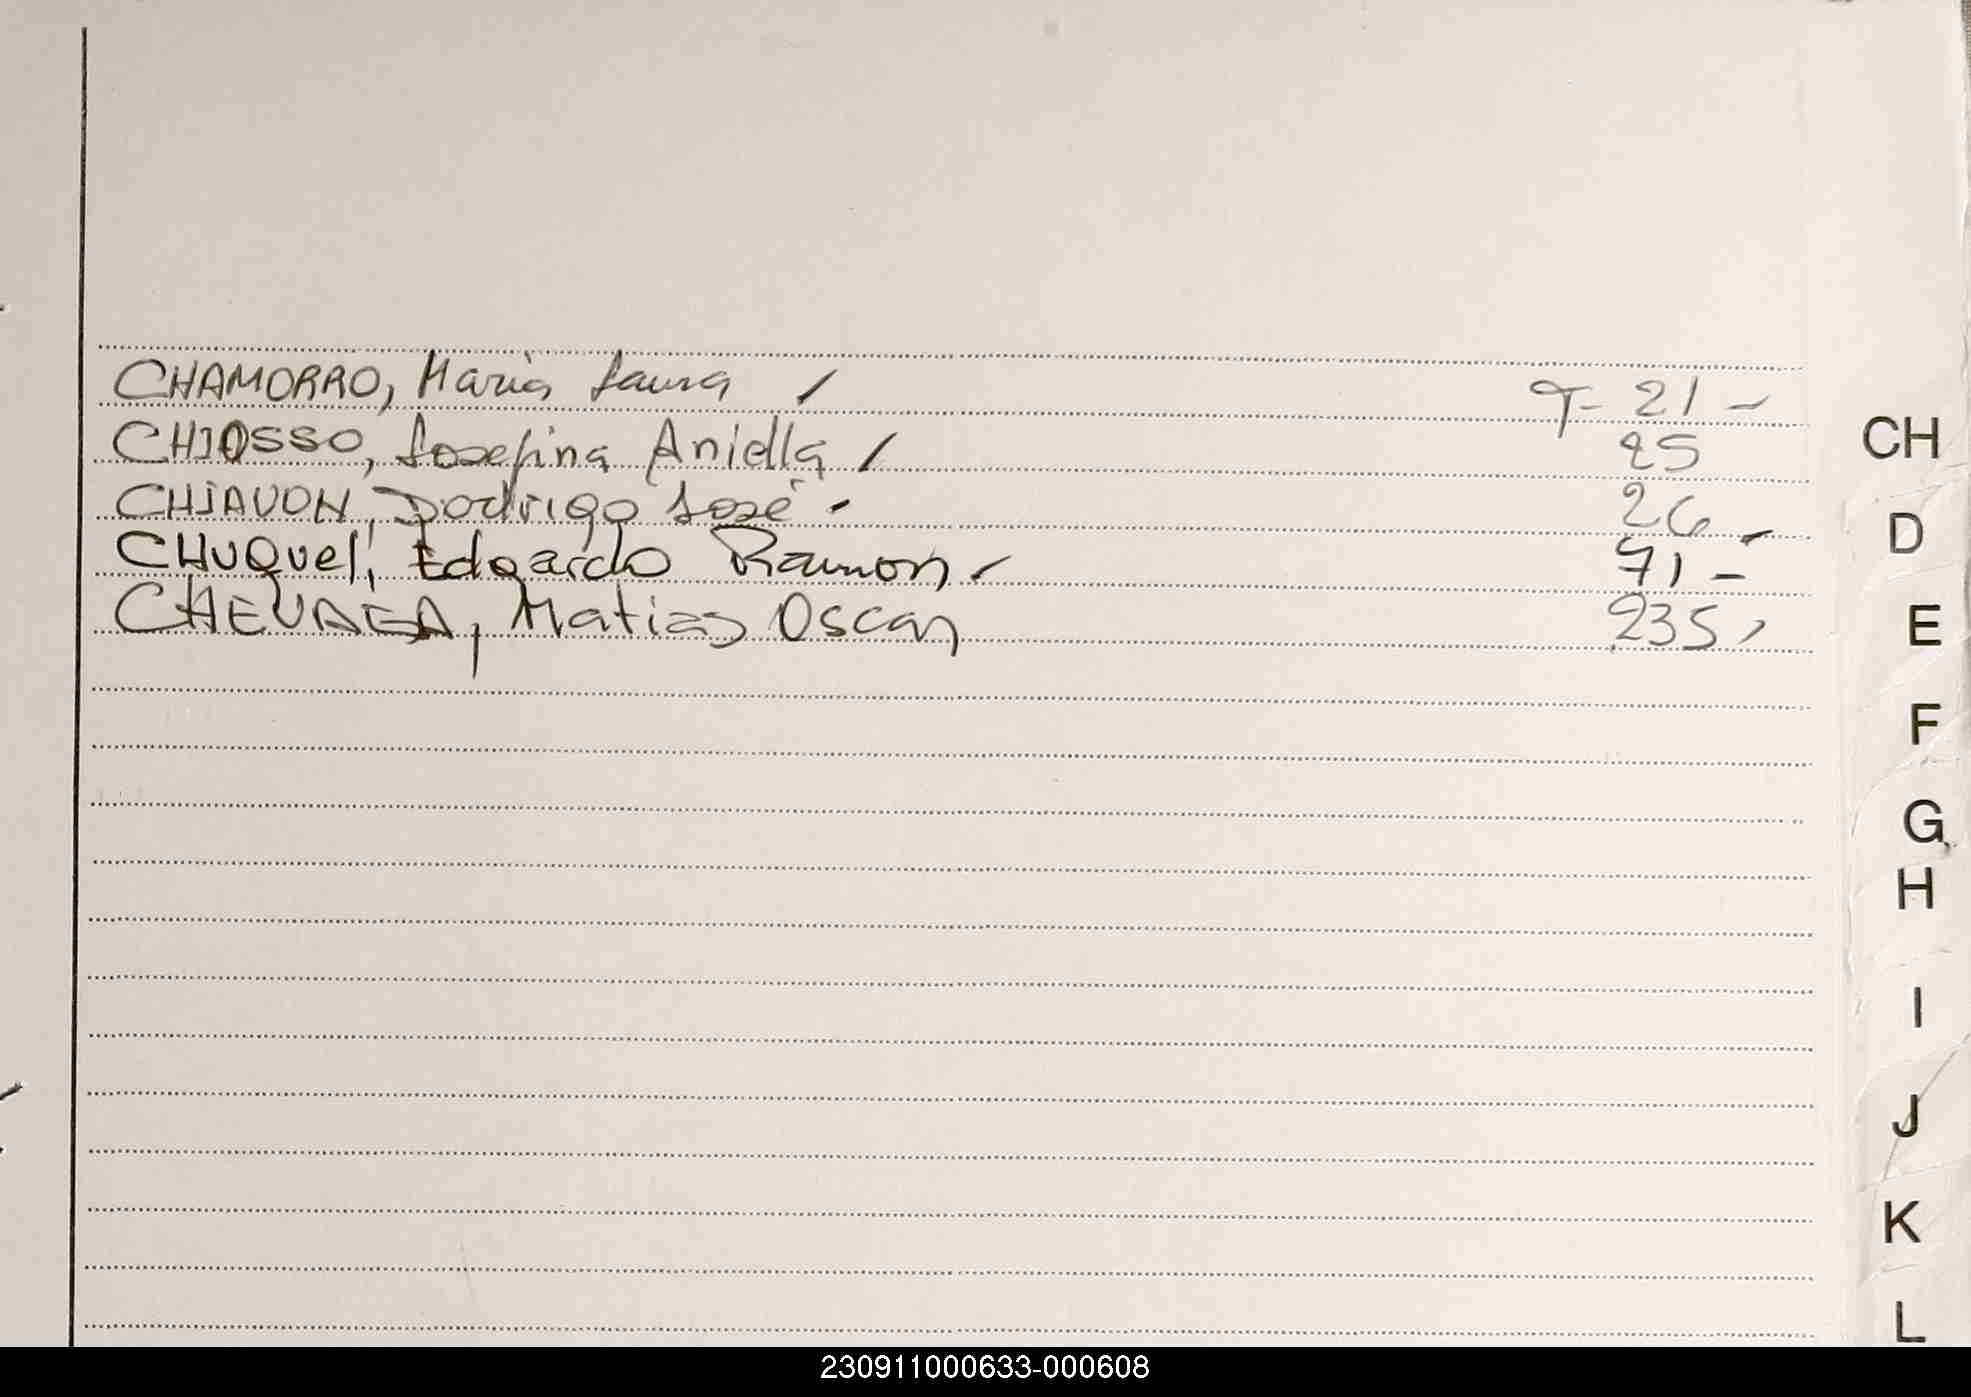 CHAMORRO, Maria Laura / T- 21 -
CHIOSSO, Josefina Aniella / 25
CHIAVON, Rodrigo José - 26 -
CHUQUEl, Edgardo Ramon - 71 -
Matias Oscar 235
CH
D
E
F
G
H
I
J
K
L
230911000633-000608